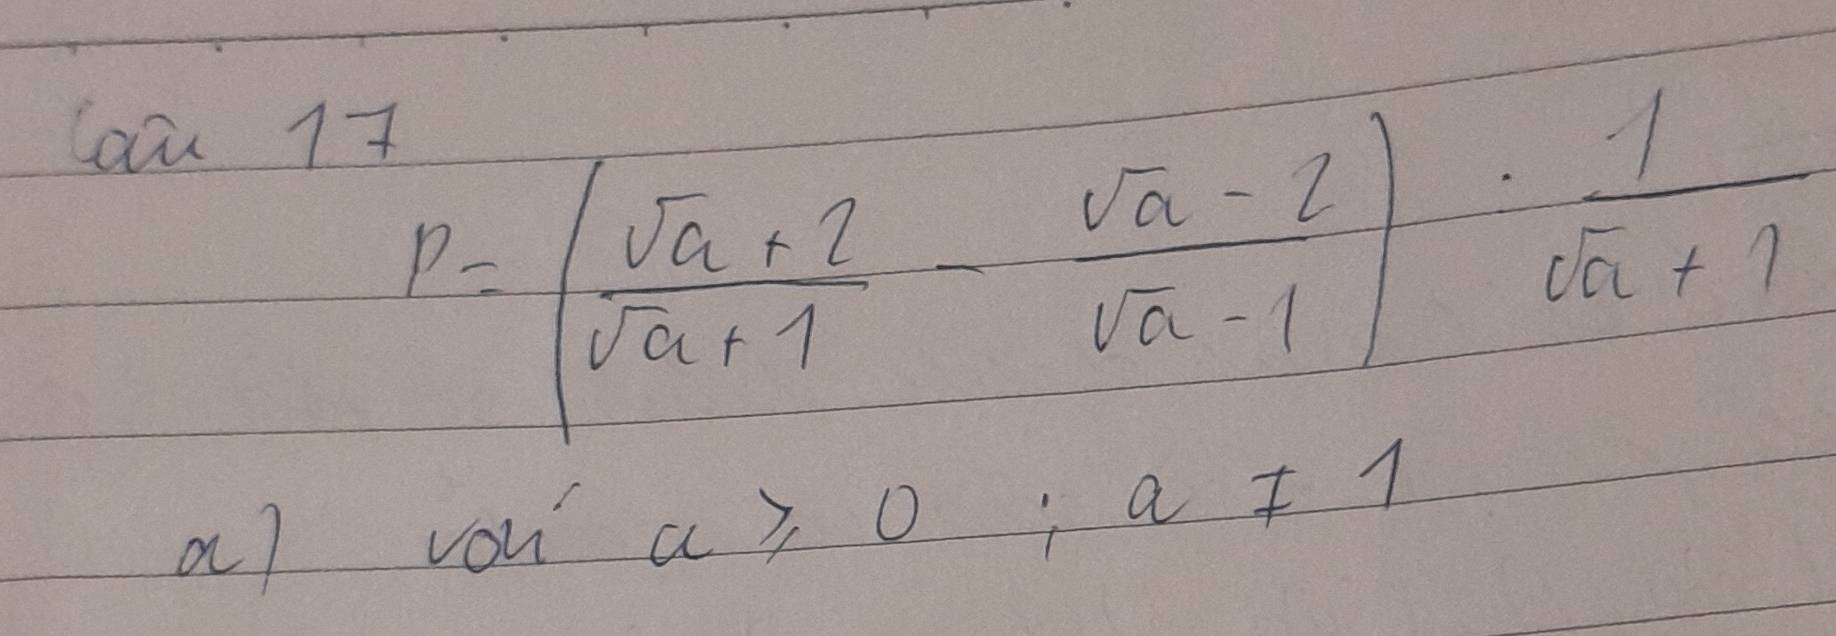 Câu 17
P = ( (√a + 2)/(√a + 1) - (√a - 2)/(√a - 1) ) · 1/(√a + 1)
a) với a ≥ 0 ; a ≠ 1